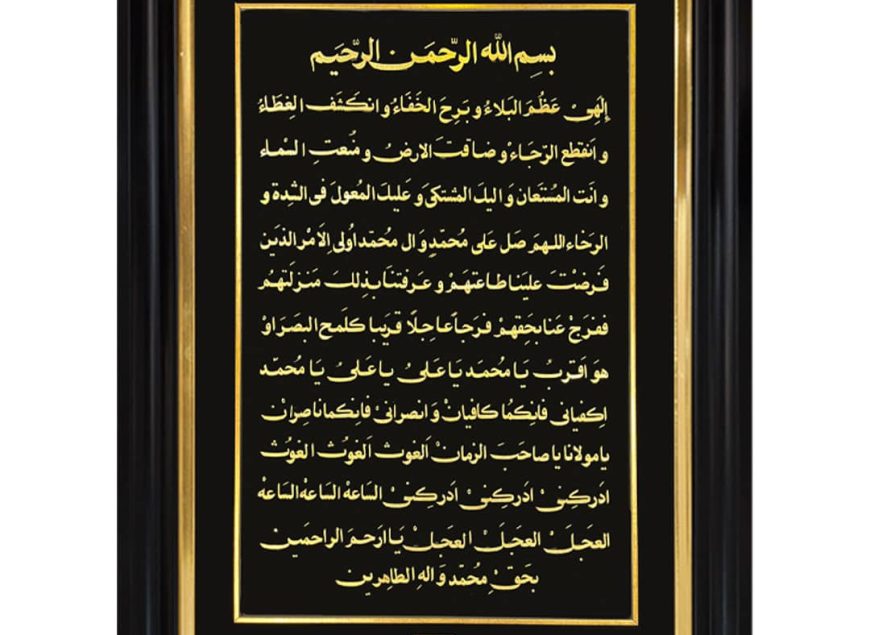 بِسِم الله الرَّحمَن الرَّحَيم
اِلَهِىْ عَظُمَ البَلاءُ و بَرِحَ الخَفَاءُ و انكَشَفَ الغِطَاءُ
و اَنقطع الرَّجَاءْ و ضاقتَ الارضُ و مُنعتِ السَّماء
و اَنت المُستَعان وَ اليكَ المُشتكىَ وَ عَليكَ المُعول فى الشِدة و
الرخاء اللهمَ صَل عَلى مُحمّدٍ وَ ال مُحمّد اُولى الاَمْر الذَين
فَرضْتَ علينا طاعتهَمْ و عَرفتنَا بذلِكَ مَنزلَتهُم
ففرَجْ عَنا بحَقهمْ فرَجاً عاجِلاً قرَيبا كلمح البصَرَ اوْ
هوَ اَقرَبُ يَا مُحمَد يَا عَلىُ يا عَلىُ يَا مُحمّد
اِكفيانى فانِكمُا كافيانْ وَ انصرانىْ فانِكما ناصِرانْ
يا مولانا يا صاحَبَ الزمانْ اَلغوث اَلغوُث الغوُث
ادَركِنىْ ادَركِنىْ ادَركِنىْ السَاعهْ السَاعهْ السَاعهْ
العجَلَ العجَلَ العجَلْ يَا ارَحمَ الراحمَين
بحَقْ مِحُمّد وَ اله الطاهرين